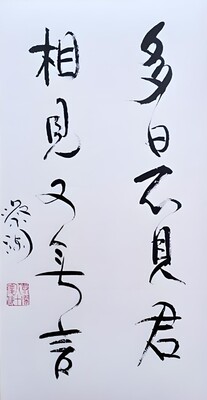 多日不見君
相見又無言